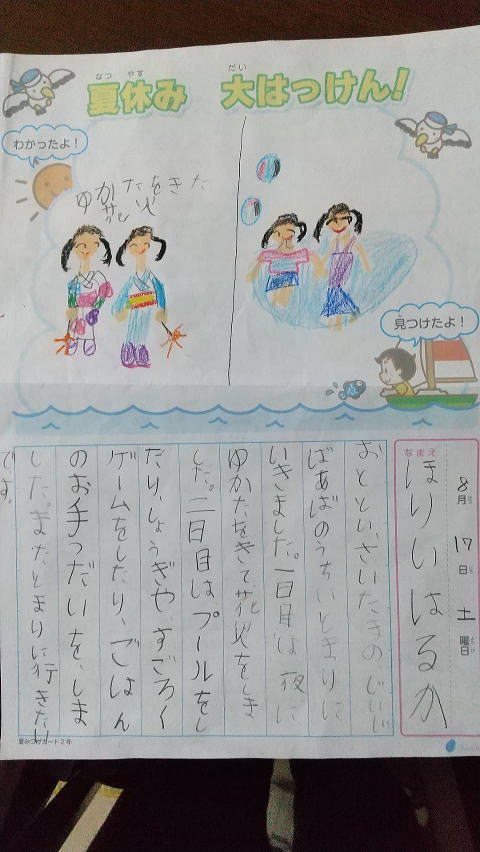 夏休み 大はっけん!
なつ やす だい
わかったよ!
ゆかたをきた
花火
見つけたよ!
8月17日土曜日
なまえ
ほりいはるか
おととい、さいたまのじいじ
ばあばのうちへとまりに
いきました。一日目は夜に
ゆかたをきて、花火をしま
した。二日目はプールをし
たり、しょうぎや、すごろく
ゲームをしたり、ごはん
のお手つだいを、しま
した。またとまりに行きたい
です。
夏みつけカード2年